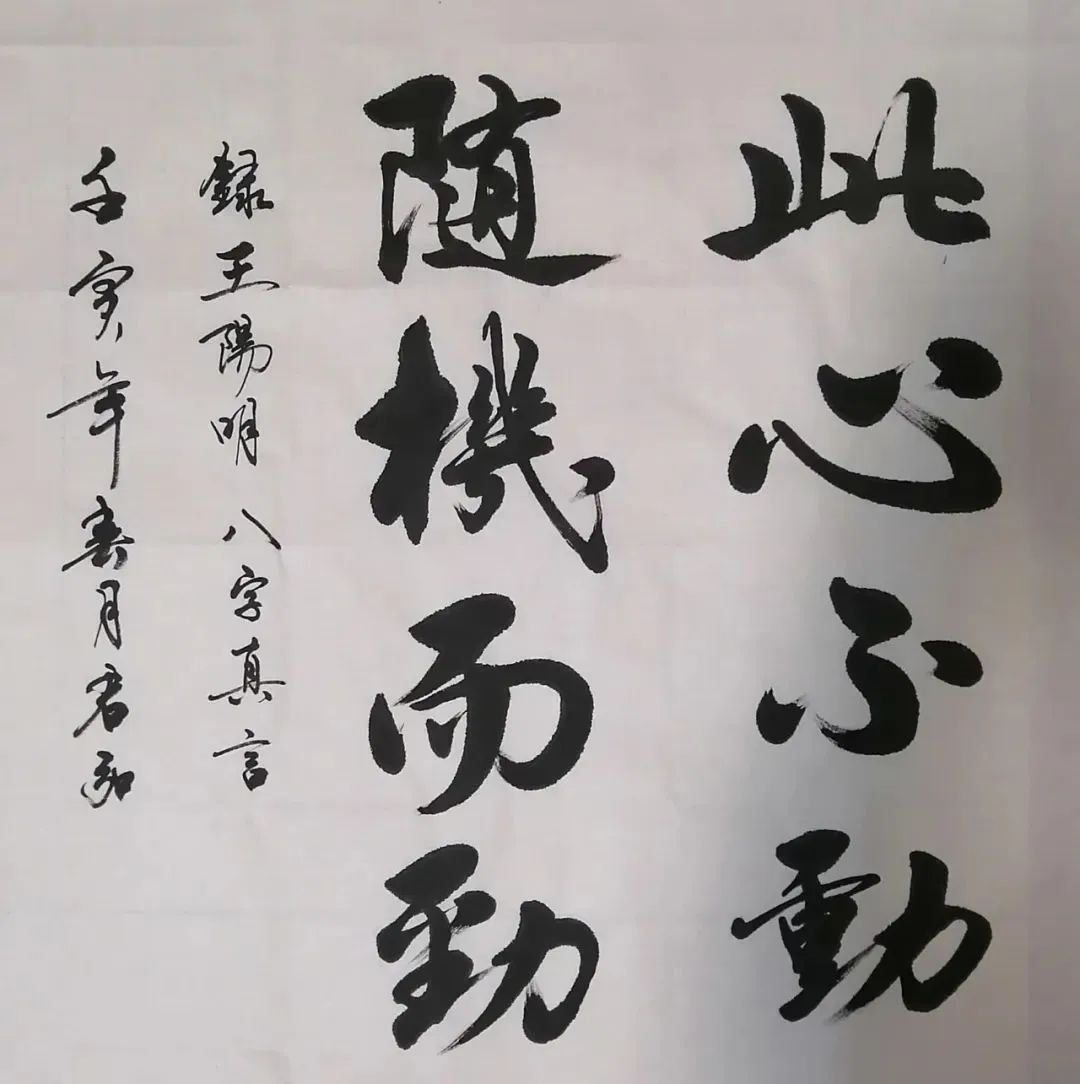 此心不動
随機而動
録王陽明八字真言
壬寅年春月君